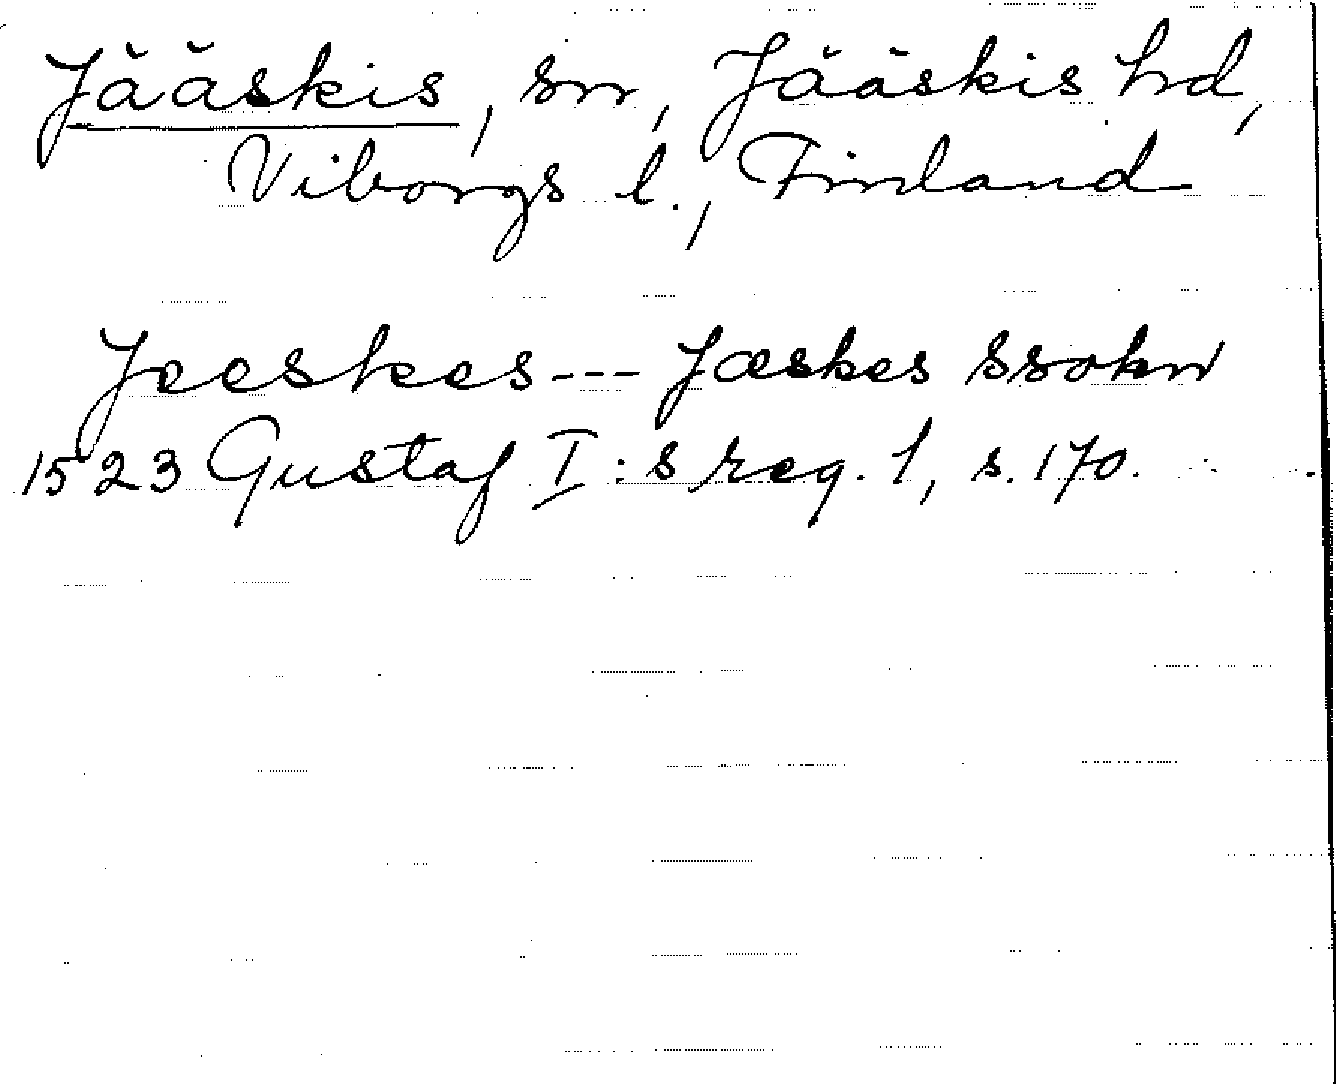 Jääskis, sn, Jääskis hd,
Viborgs l., Finland
Jeeskes --- Jæskes ssokn
1523 Gustaf I:s reg. 1, s. 170.